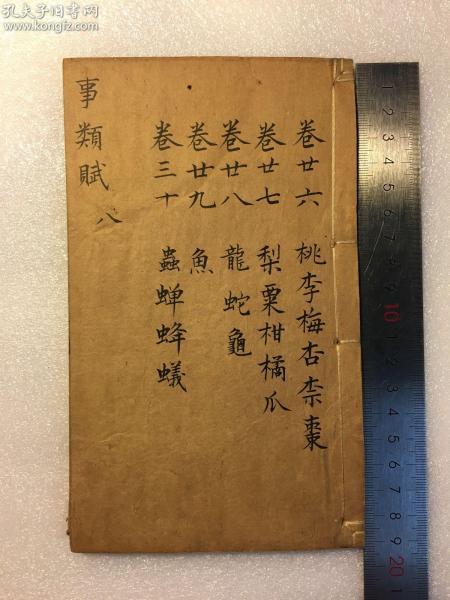 孔夫子旧书网
www.kongfz.com
卷廿六 桃李梅杏柰棗
卷廿七 梨栗柑橘瓜
卷廿八 龍蛇龜
卷廿九 魚
卷三十 蟲蟬蜂蟻
事類賦 八
1 2 3 4 5 6 7 8 9 10 1 2 3 4 5 6 7 8 9 20 1